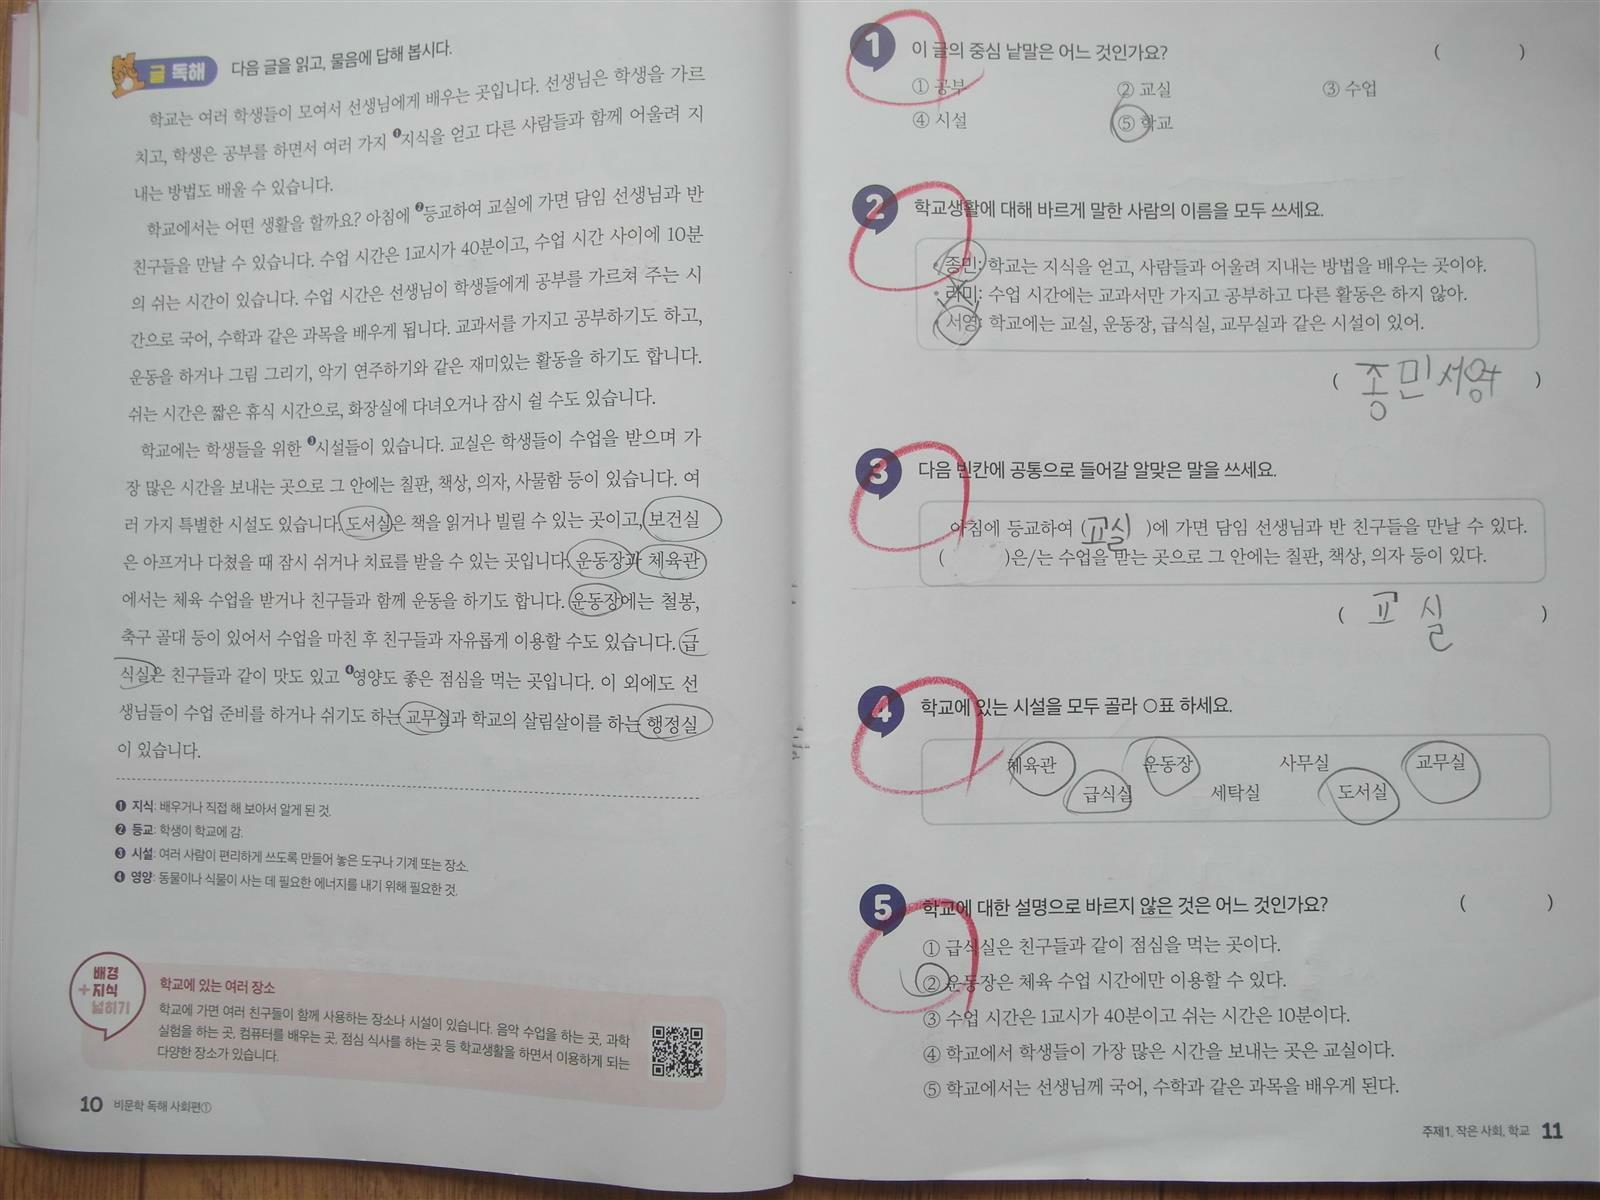 글 독해 다음 글을 읽고, 물음에 답해 봅시다.
학교는 여러 학생들이 모여서 선생님에게 배우는 곳입니다. 선생님은 학생을 가르
치고, 학생은 공부를 하면서 여러 가지 ❶지식을 얻고 다른 사람들과 함께 어울려 지
내는 방법도 배울 수 있습니다.
학교에서는 어떤 생활을 할까요? 아침에 ❷등교하여 교실에 가면 담임 선생님과 반
친구들을 만날 수 있습니다. 수업 시간은 1교시가 40분이고, 수업 시간 사이에 10분
의 쉬는 시간이 있습니다. 수업 시간은 선생님이 학생들에게 공부를 가르쳐 주는 시
간으로 국어, 수학과 같은 과목을 배우게 됩니다. 교과서를 가지고 공부하기도 하고,
운동을 하거나 그림 그리기, 악기 연주하기와 같은 재미있는 활동을 하기도 합니다.
쉬는 시간은 짧은 휴식 시간으로, 화장실에 다녀오거나 잠시 쉴 수도 있습니다.
학교에는 학생들을 위한 ❸시설들이 있습니다. 교실은 학생들이 수업을 받으며 가
장 많은 시간을 보내는 곳으로 그 안에는 칠판, 책상, 의자, 사물함 등이 있습니다. 여
러 가지 특별한 시설도 있습니다. 도서실은 책을 읽거나 빌릴 수 있는 곳이고, 보건실
은 아프거나 다쳤을 때 잠시 쉬거나 치료를 받을 수 있는 곳입니다. 운동장과 체육관
에서는 체육 수업을 받거나 친구들과 함께 운동을 하기도 합니다. 운동장에는 철봉,
축구 골대 등이 있어서 수업을 마친 후 친구들과 자유롭게 이용할 수도 있습니다. 급
식실은 친구들과 같이 맛도 있고 ❹영양도 좋은 점심을 먹는 곳입니다. 이 외에도 선
생님들이 수업 준비를 하거나 쉬기도 하는 교무실과 학교의 살림살이를 하는 행정실
이 있습니다.
❶ 지식: 배우거나 직접 해 보아서 알게 된 것.
❷ 등교: 학생이 학교에 감.
❸ 시설: 여러 사람이 편리하게 쓰도록 만들어 놓은 도구나 기계 또는 장소.
❹ 영양: 동물이나 식물이 사는 데 필요한 에너지를 내기 위해 필요한 것.
배경
+지식
넓히기
학교에 있는 여러 장소
학교에 가면 여러 친구들이 함께 사용하는 장소나 시설이 있습니다. 음악 수업을 하는 곳, 과학
실험을 하는 곳, 컴퓨터를 배우는 곳, 점심 식사를 하는 곳 등 학교생활을 하면서 이용하게 되는
다양한 장소가 있습니다.
10 비문학 독해 사회편①
1 이 글의 중심 낱말은 어느 것인가요? ( )
① 공부 ② 교실 ③ 수업
④ 시설 ⑤ 학교
2 학교생활에 대해 바르게 말한 사람의 이름을 모두 쓰세요.
• 종민: 학교는 지식을 얻고, 사람들과 어울려 지내는 방법을 배우는 곳이야.
• 라미: 수업 시간에는 교과서만 가지고 공부하고 다른 활동은 하지 않아.
• 서영: 학교에는 교실, 운동장, 급식실, 교무실과 같은 시설이 있어.
( 종민 서영 )
3 다음 빈칸에 공통으로 들어갈 알맞은 말을 쓰세요.
아침에 등교하여 ( 교실 )에 가면 담임 선생님과 반 친구들을 만날 수 있다.
( )은/는 수업을 받는 곳으로 그 안에는 칠판, 책상, 의자 등이 있다.
( 교실 )
4 학교에 있는 시설을 모두 골라 ○표 하세요.
체육관 운동장 사무실 교무실
급식실 세탁실 도서실
5 학교에 대한 설명으로 바르지 않은 것은 어느 것인가요? ( )
① 급식실은 친구들과 같이 점심을 먹는 곳이다.
② 운동장은 체육 수업 시간에만 이용할 수 있다.
③ 수업 시간은 1교시가 40분이고 쉬는 시간은 10분이다.
④ 학교에서 학생들이 가장 많은 시간을 보내는 곳은 교실이다.
⑤ 학교에서는 선생님께 국어, 수학과 같은 과목을 배우게 된다.
주제1. 작은 사회, 학교 11